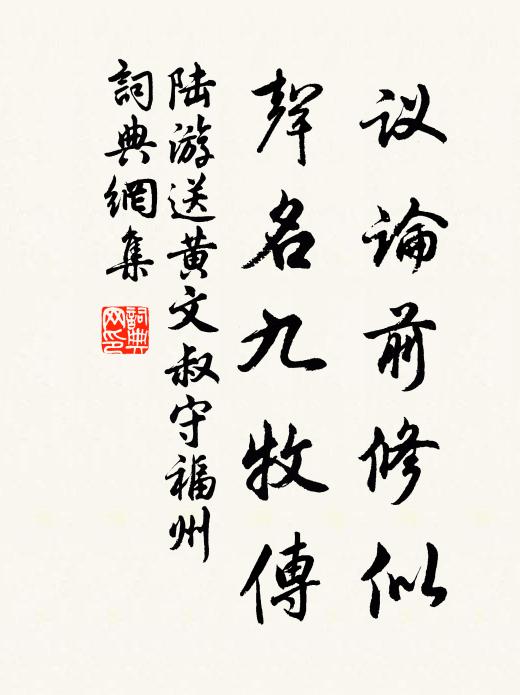 议論前修似
聲名九牧傳
陆游送黄文叔守福州
詞典網集
詞典网印